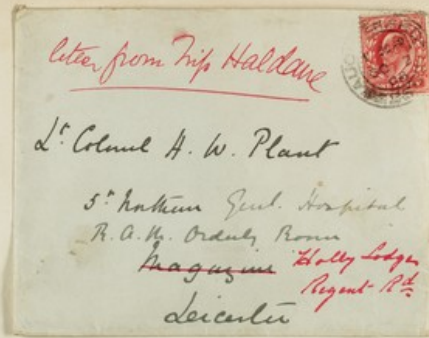 letter from Miss Haldane
Lt. Colonel H. W. Plant
5th Northern Genl. Hospital
R.A.M. Orderly Room
Magazine Holly Lodge
Regent Rd
Leicester